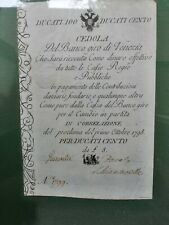 DUCATI 100 DUCATI CENTO
CEDOLA
Del Banco giro di Venezia
Che sarà ricevuta Come dinaro effettivo
da tutte le Casse Regie
e Pubbliche
in pagamento delle Contribuzioni
daziarie, fondiarie, e qualunque altra
Come pure dalla Cassa del Banco giro
per il Cambio in partita
IN CORRELAZIONE
del proclama del primo Ottobre 1798
PER DUCATI CENTO
da £ 8.